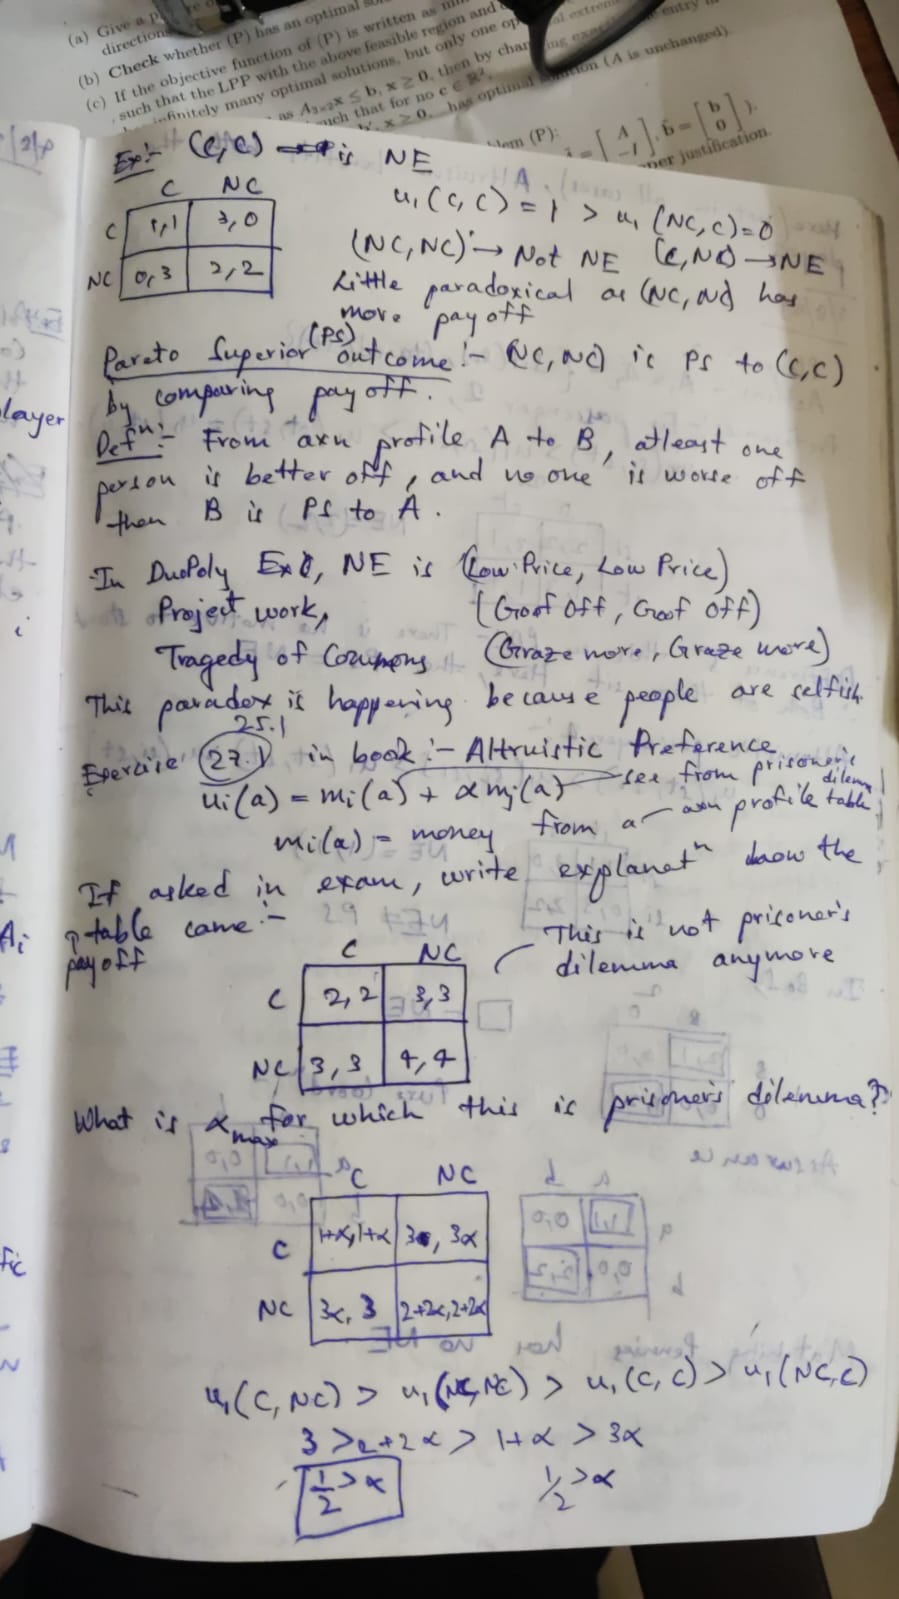 (a) Give a
direction
(b) Check whether (P) has an optimal
(c) If the objective function of (P) is written as
such that the LPP with the above feasible region and
infinitely many optimal solutions, but only one
as A₃ₓ₂x ≤ b, x ≥ 0, then by changing entry
such that for no c ∈ ℝ²,
x ≥ 0, has optimal solution (A is unchanged).
(P):
= [A -I], b̃ = [b 0]).
justification.
Ex:- (C,C) is NE
C NC
C 1,1 3,0
NC 0,3 2,2
u₁(C,C) = 1 > u₁(NC,C) = 0
(NC,NC) → Not NE (C,NC) → NE
Little paradoxical as (NC,NC) has
more pay off
Pareto Superior (PS) outcome:- (NC,NC) is PS to (C,C)
by comparing pay off.
Defⁿ:- From axn profile A to B, atleast one
person is better off, and no one is worse off
then B is PS to A.
layer
In DuoPoly Ex, NE is (Low Price, Low Price)
Project work, (Goof Off, Goof Off)
i
Tragedy of Commons (Graze more, Graze more)
This paradox is happening because people are selfish.
25.1
Exercise 27.1 in book:- Altruistic Preference
uᵢ(a) = mᵢ(a) + αmⱼ(a) see from prisoner's dilemma
mᵢ(a) = money from a axn profile table
If asked in exam, write explanatⁿ how the
Aᵢ
table came:-
payoff
This is not prisoner's
dilemma anymore
C NC
C 2,2 3,3
NC 3,3 4,4
What is α max for which this is prisoner's dilemma?
C NC
C 1+α,1+α 3, 3α
NC 3α, 3 2+2α,2+2α
u₁(C,NC) > u₁(NC,NC) > u₁(C,C) > u₁(NC,C)
3 > 2+2α > 1+α > 3α
½ > α ½ > α